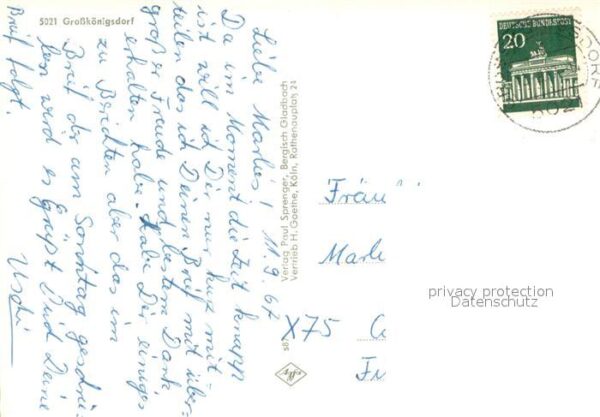 5021 Großkönigsdorf
Liebe Marlies! 11.9.67
Da im Moment die Zeit knapp
ist will ich Dir nur kurz mit-
teilen das ich Deinen Brief mit über-
großer Freude und bestem Dank
erhalten habe. Habe Dir einiges
zu Berichten aber das im
Brief der am Sonntag geschrie-
ben wird es Grüßt Dich Deine
Brief folgt. Uschi
Verlag Paul Sprenger, Bergisch Gladbach
Vertrieb H. Goethe, Köln, Rathenauplatz 21
DEUTSCHE BUNDESPOST
20
5021
Fräu
Marl
X75
privacy protection
Datenschutz